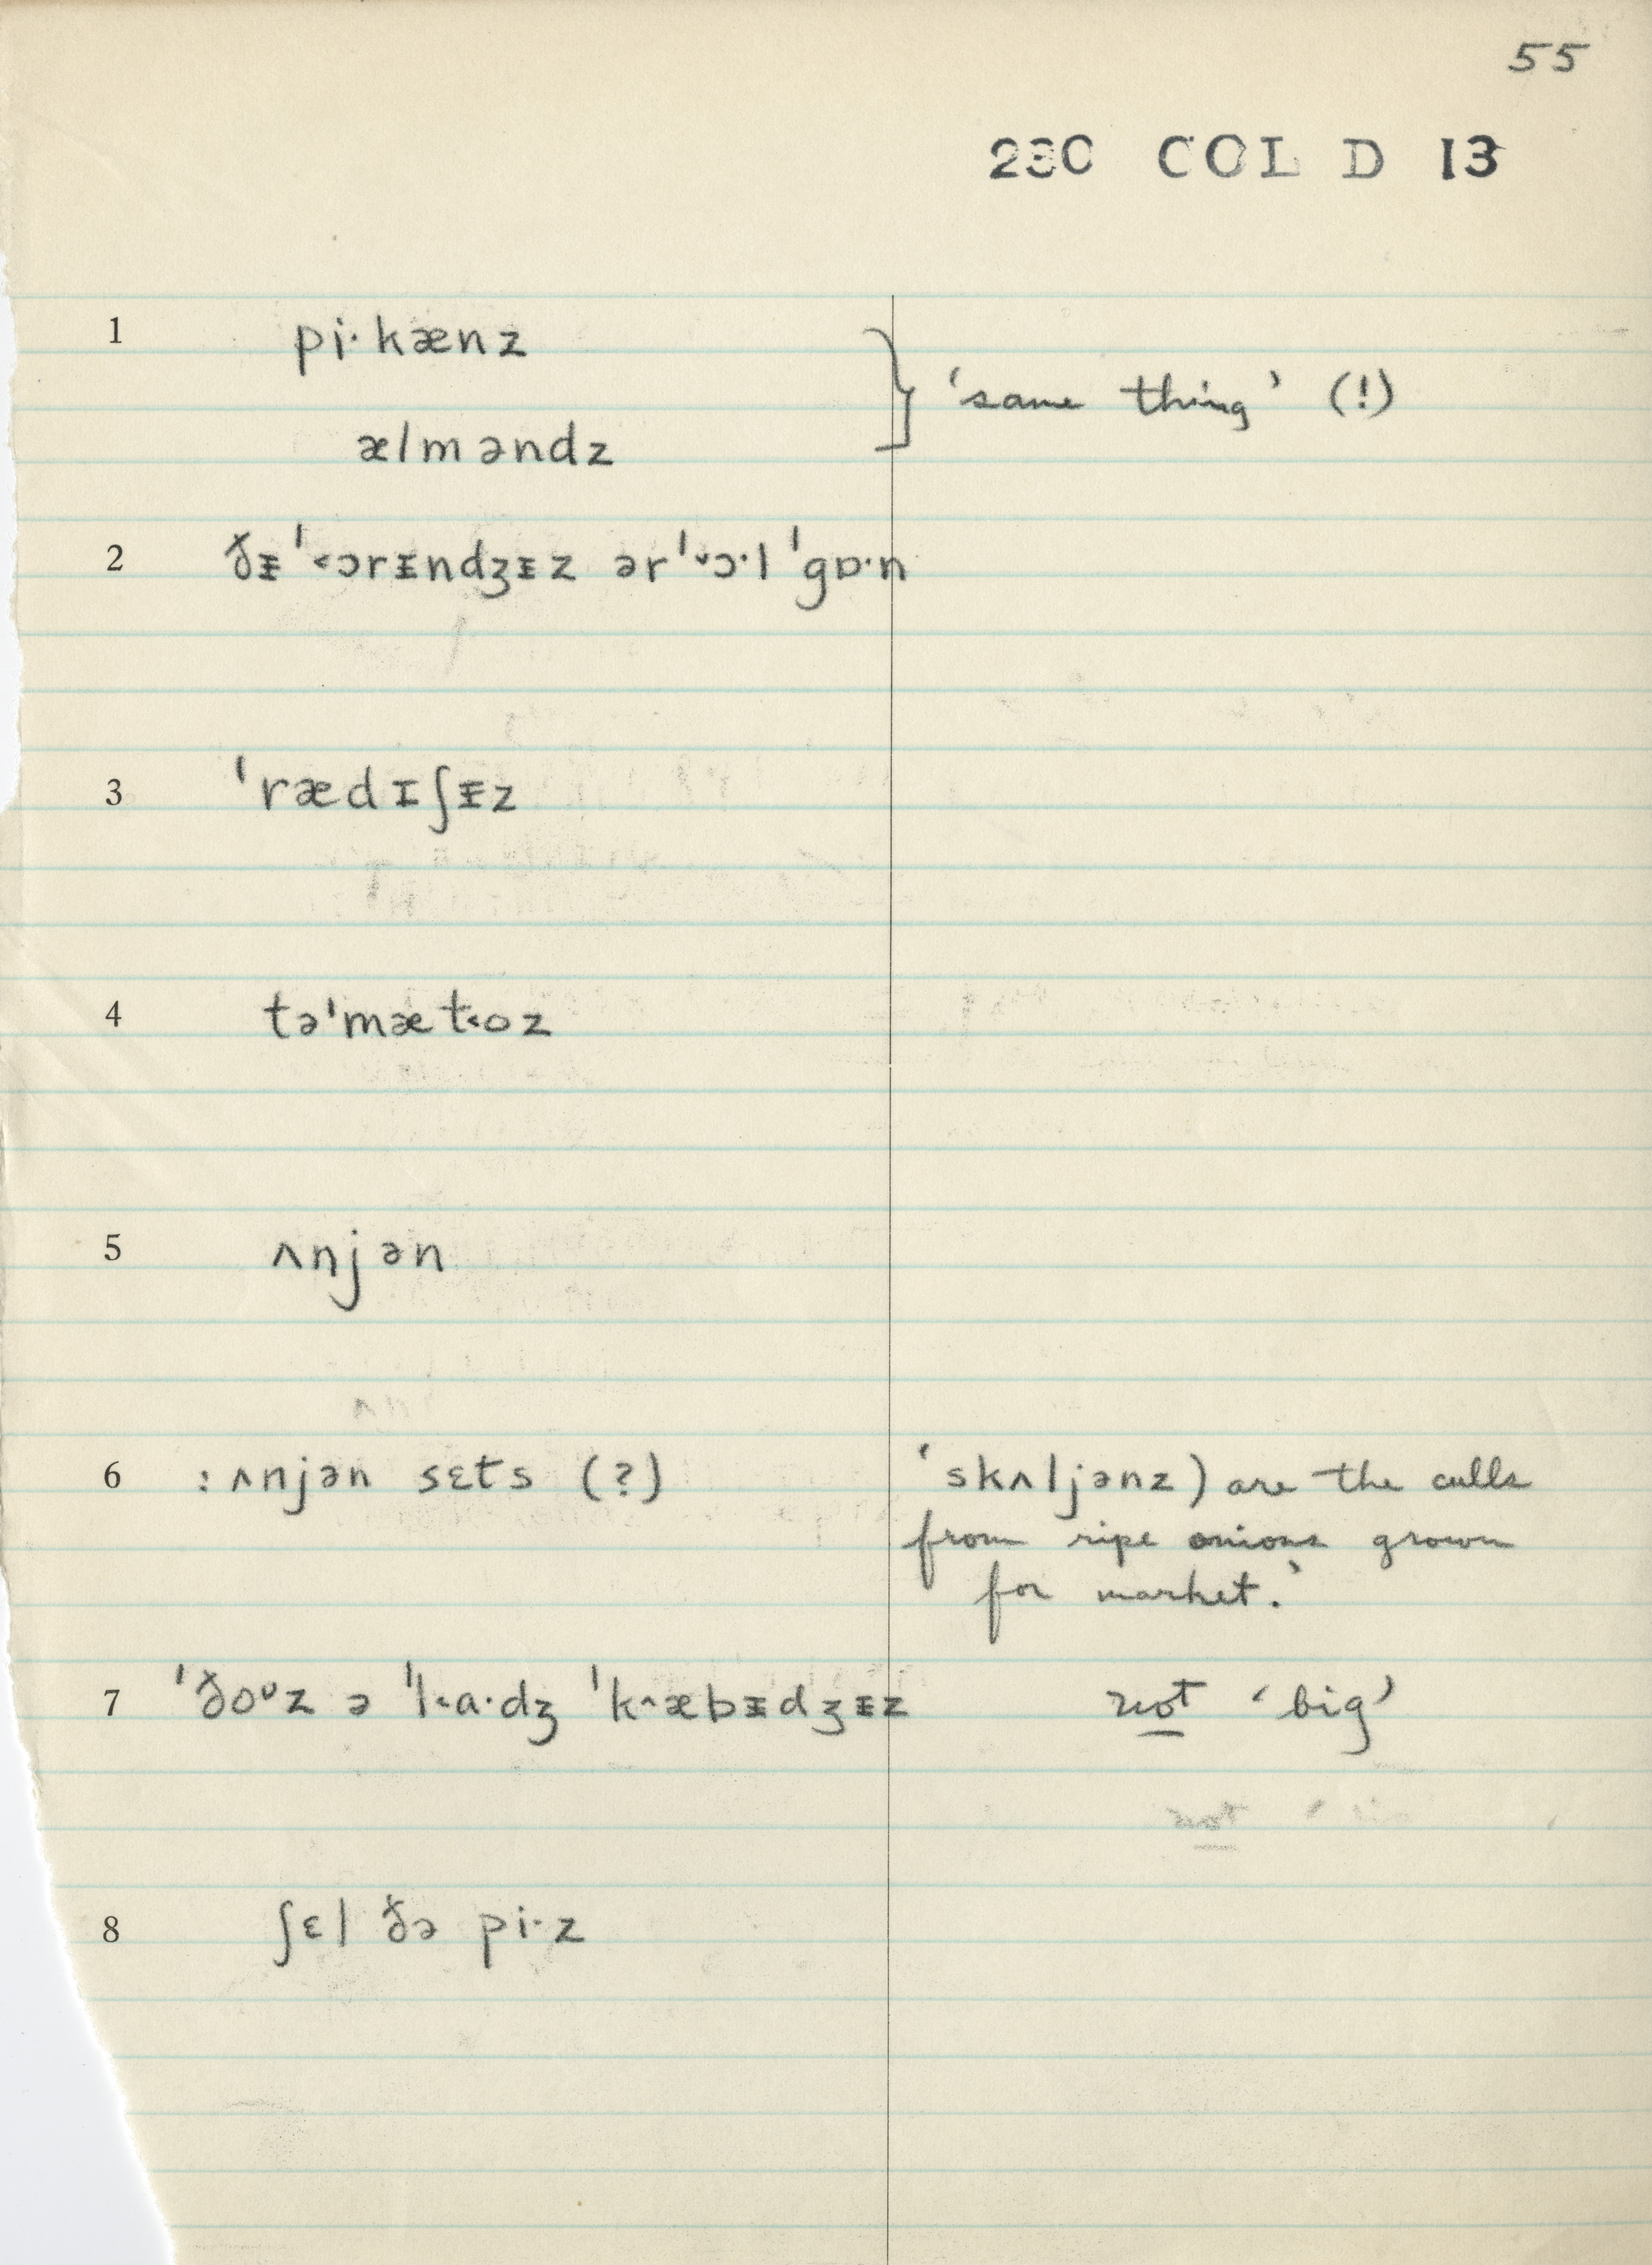 55
230 COL D 13
1 pi·kænz } 'same thing' (!)
ælməndz
2 ðᵻˈ˂ɔrᵻndʒᵻz ərˈ˅ɔ·l ˈgɒ·n
3 ˈrædɪʃᵻz
4 təˈmæt˂oz
5 ʌnjən
6 : ʌnjən sɛts (?) 'skʌljənz) are the culls
from ripe onions grown
for market.'
7 ˈðoᶷz ə ˈl˂a·dʒ ˈk˄æbᵻdʒᵻz not 'big'
8 ʃɛl ðə pi·z